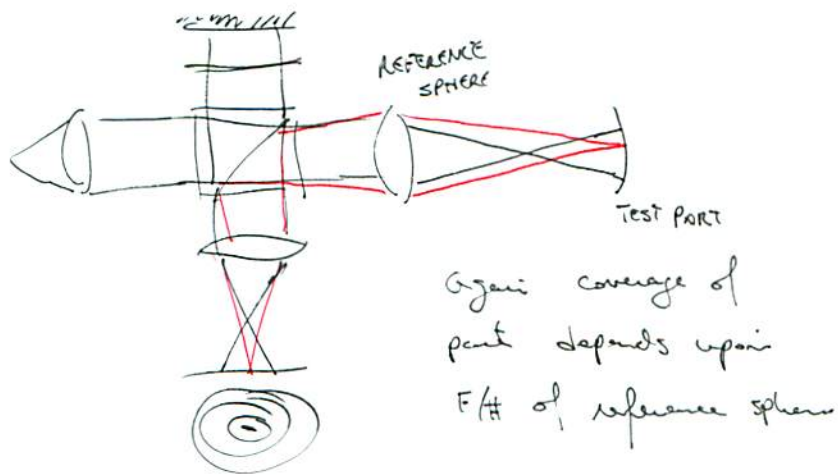 REFERENCE
SPHERE
TEST PART
Again coverage of
part depends upon
F/# of reference sphere